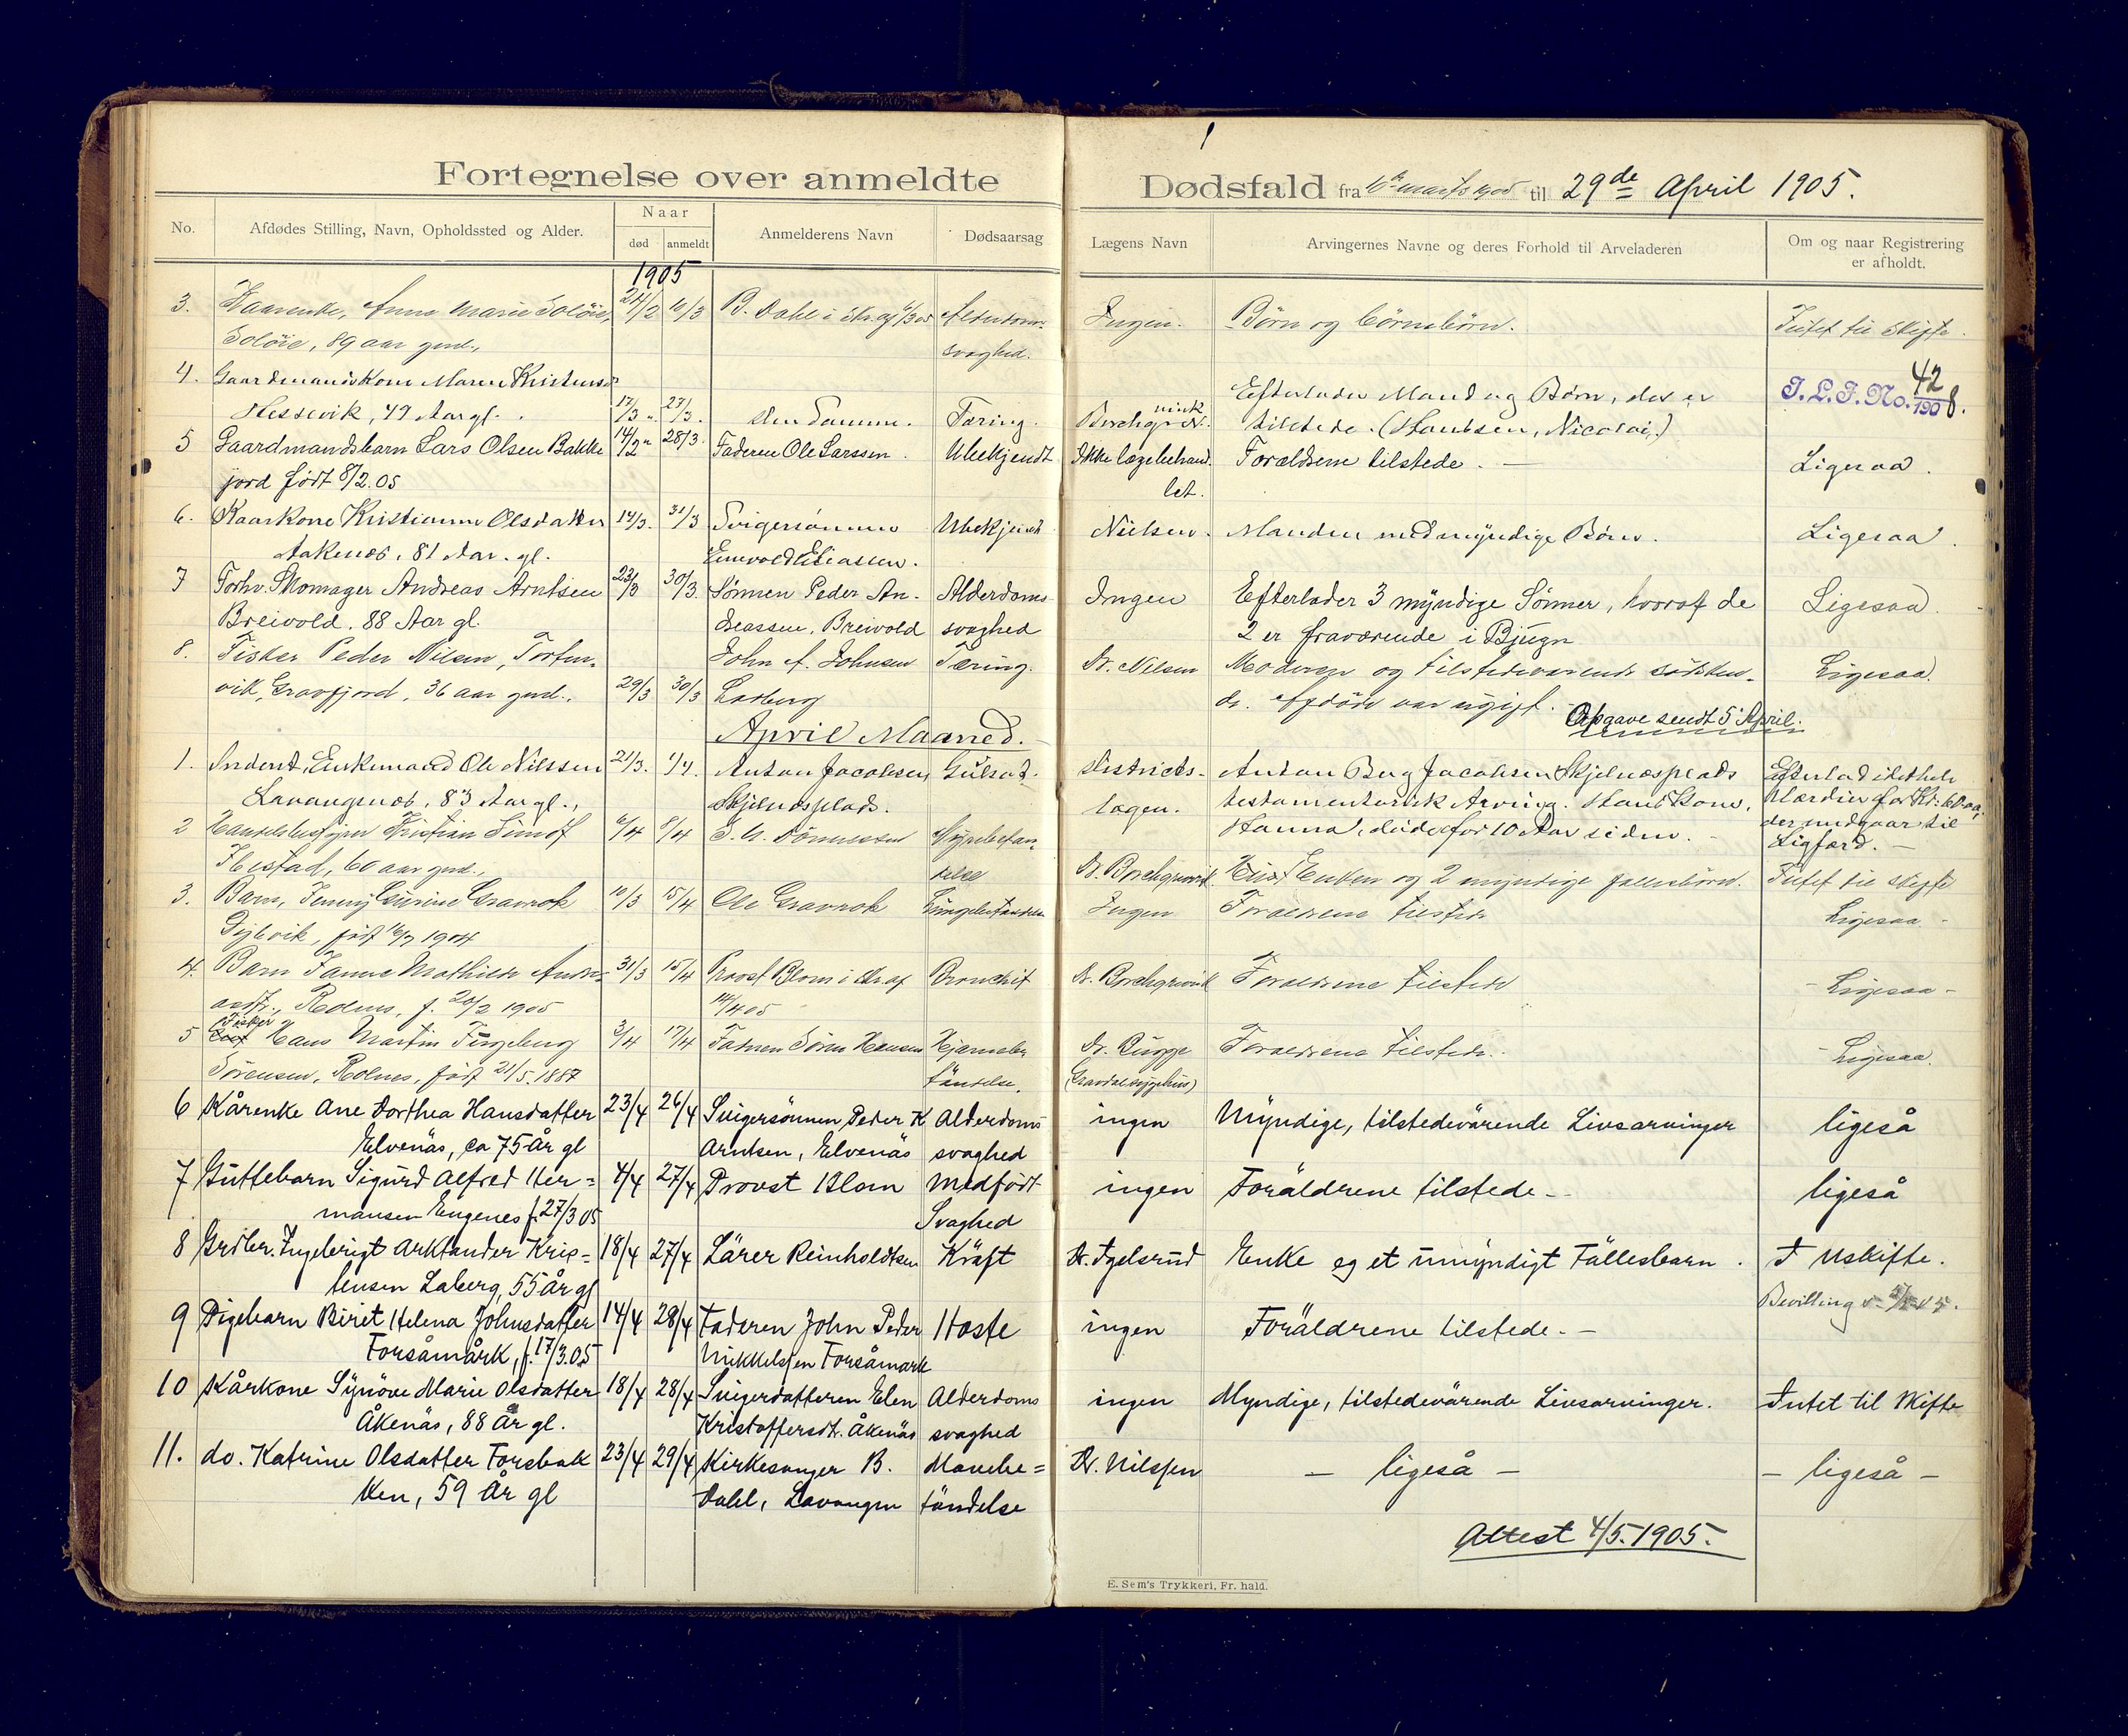 Fortegnelse over anmeldte
Dødsfald fra 10de marts 1905 til 29de April 1905.
No.
Afdødes Stilling, Navn, Opholdssted og Alder.
Naar
død
anmeldt
Anmelderens Navn
Dødsaarsag
Lægens Navn
Arvingernes Navne og deres Forhold til Arveladeren
Om og naar Registrering
er afholdt.
1905
3. Kaarenke, Anne Marie Soløie, 24/2 10/3 B. Dahl i Skr. af 6/3 05 Alderdoms- Ingen. Børn og børnebørn. Intet til skifte.
Soløie, 89 aar gml., svaghed.
4. Gaardmandskone Maren Kristensd
Hessevik, 49 Aar gl. 17/3 27/3. den Samme. Tæring. Borchgrevink Efterlader Mand og Børn, der er
tilstede. (Hantsen, Nicolai,) J. L. J. No. 42/1908.
5 Gaardmandsbarn Lars Olsen Bakke 14/2 28/3. Faderen Ole Larssen. Ubekjendt Ikke lægebehand- Forældrene tilstede. — Ligesaa.
jord født 8/2.05 let.
6. Kaarkone Kristianne Olsdatter 14/3. 31/3 Svigersønnen Ubekjendt Nielsen. Manden med myndige Børn. Ligesaa.
Aakenes, 81 Aar. gl. Enevold Eliassen.
7 Forhv. Skomager Andreas Arntsen 23/3 30/3. Sønnen Peder An- Alderdoms Ingen Efterlader 3 myndige Sønner, hvoraf de Ligesaa.
Breivold. 88 Aar gl. dreassen, Breivold svaghed 2 er fraværende i Bjugn
8. Fisker Peder Nilsen, Torfin- John A. Johnsen Tæring. Dr. Nilsen Moderen og tilstedeværende sødsken- Ligesaa.
vik, Gravfjord, 36 aar gml., 29/3 30/3 Laberg de. Afdøde var ugift.
Opgave sendt 5 April.
April Maaned.
1. Inderst, Enkemand Ole Nilssen 21/3. 1/4. Anton Jacobsen Gulsot. Districts- Anton Berg Jacobsen Skjelnesplads Efterlod idethele
Lavangsnes, 83 Aar gl., Skjelnesplads. lægen. testamentarisk Arving. Hans Kone, Værdier for Kr: 60.00,
Hanna, døde for 10 Aar siden. – der medgaar til
Ligfærd. –
2 Handelsbestyrer Kristian Lund 6/4 8/4
Ibestad, 60 aar gml., Dr. Borchgrevink Enken og 2 myndige fællesbørn. Intet til skifte
3. Barn, Jenny Gurine Gravrok 10/3 15/4 Ole Gravrok Lungebetændelse Ingen Forældrene tilstede Ligesaa –
født 16/7 1904
4. Barn Hanne Mathilde Andre- 31/3 15/4 Provst Blom i Skr. af Bronchit Dr. Borchgrevink Forældrene tilstede – Ligesaa –
asdtr., Rednes, f. 20/2 1905 14/4 05
5 Fisker Hans Martin Fingeberg 3/4 17/4 Faderen Søren Hansen Hjernebe- Dr. Rugge Forældrene tilstede. – Ligesaa.
Sørensen, Rolnes, født 21/5.1887 tændelse. (Gravdal sygehus)
6 Kårenke Ane Dorthea Hansdatter 23/4 26/4 Svigersønnen Peder K Alderdoms ingen Myndige, tilstedevärende Livsarvinger ligeså
Elvenäs, ca 75 år gl Arntsen, Elvenäs svaghed
7 Guttebarn Sigurd Alfred Her= 4/4 27/4 Provst Blom Medfödt ingen Foräldrene tilstede – ligeså
mansen Engenes f. 27/3 05 Svaghed
8 Grdbr. Ingebrigt Arktander Kris= 18/4 27/4 Lärer Reinholdtsen Kräft Dr. Igelsrud Enke og et umyndigt Fällesbarn. I Uskifte.
tensen Laberg, 55 år gl Bevilling
9 Pigebarn Biret Helena Johnsdatter 14/4 28/4 Faderen John Peder Hoste ingen Foräldrene tilstede. –
Forsåmårk, f. 17/3.05 Mikkelsen Forsåmark
10 Kårkone Synöve Marie Olsdatter 18/4 28/4 Svigerdatteren Elen Alderdoms ingen Myndige, tilstedevärende Livsarvinger. Intet til Skifte
Åkenäs, 88 år gl. Kristoffersdt. Åkenäs svaghed
11. do. Katrine Olsdatter Forsbak 23/4 29/4 Kirkesanger B. Mavebe= Dr. Nilssen – ligeså – – ligeså –
ken, 59 år gl Dahl, Lavangen tändelse
Attest 4/5.1905.
E. Sem's Trykkeri, Fr. hald.